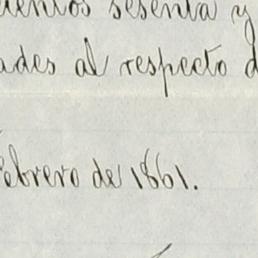 sesenta y
ades al respecto d
Febrero de 1861.